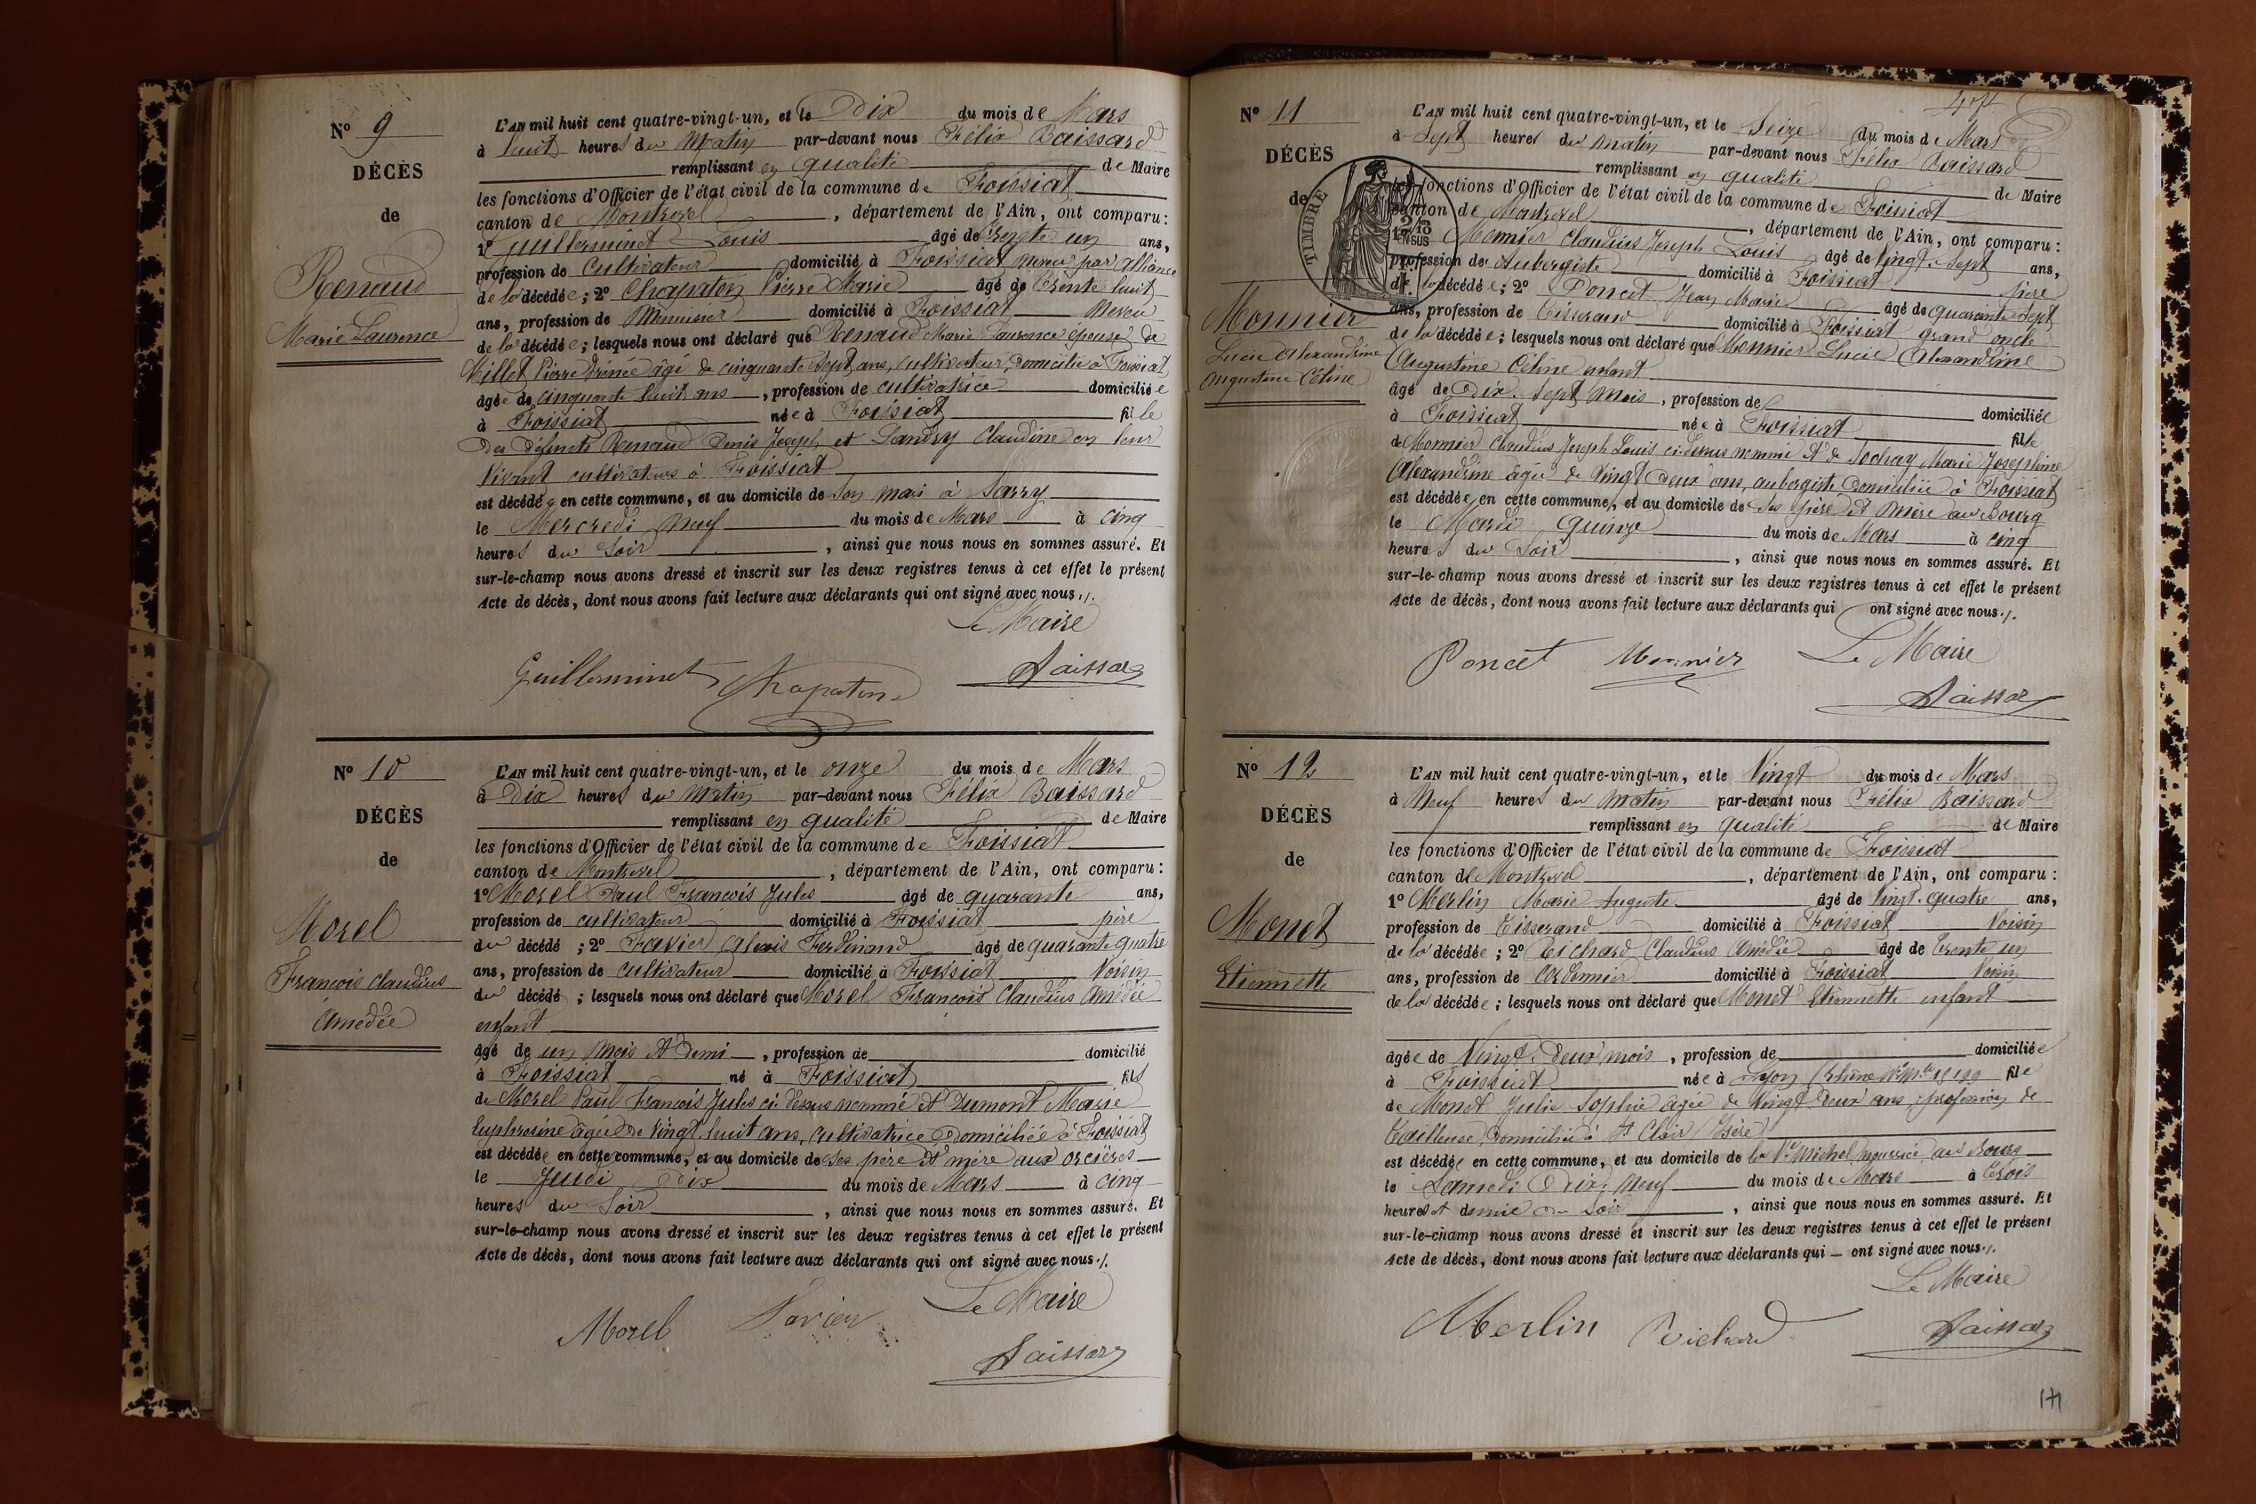 N° 9
DÉCÈS
de
Renaud
Marie Laurence
L'AN mil huit cent quatre-vingt-un, et le Dix du mois de Mars
à huit heures du Matin par-devant nous Félix Baissard
remplissant en qualité de Maire
les fonctions d'Officier de l'état civil de la commune de Foissiat
canton de Montrevel, département de l'Ain, ont comparu :
1° Guillerminet Louis âgé de trente un ans,
profession de Cultivateur domicilié à Foissiat neveu par alliance
de la décédée ; 2° Chapaton Pierre Marie âgé de trente huit
ans, profession de Menuisier domicilié à Foissiat Neveu
de la décédée ; lesquels nous ont déclaré que Renaud Marie Laurence épouse de
Millet Pierre Irénée âgé de cinquante sept ans, cultivateur, domicilié à Foissiat
âgée de cinquante huit ans, profession de cultivatrice domiciliée
à Foissiat née à Foissiat fille
des défunts Renaud Denis Joseph et Landry Claudine en leur
vivant cultivateurs à Foissiat
est décédée en cette commune, et au domicile de son mari à Sarry
le Mercredi neuf du mois de Mars à cinq
heures du Soir, ainsi que nous nous en sommes assuré. Et
sur-le-champ nous avons dressé et inscrit sur les deux registres tenus à cet effet le présent
Acte de décès, dont nous avons fait lecture aux déclarants qui ont signé avec nous ./.
Le Maire
Guillerminet Chapaton Baissard
N° 10
DÉCÈS
de
Morel
François Claudius
Amédée
L'AN mil huit cent quatre-vingt-un, et le onze du mois de Mars
à Dix heures du Matin par-devant nous Félix Baissard
remplissant en qualité de Maire
les fonctions d'Officier de l'état civil de la commune de Foissiat
canton de Montrevel, département de l'Ain, ont comparu :
1° Morel Paul François Jules âgé de quarante ans,
profession de cultivateur domicilié à Foissiat père
du décédé ; 2° Favier Alexis Ferdinand âgé de quarante quatre
ans, profession de Cultivateur domicilié à Foissiat Voisin
du décédé ; lesquels nous ont déclaré que Morel François Claudius Amédée
enfant
âgé de un mois et demi, profession de domicilié
à Foissiat né à Foissiat fils
de Morel Paul François Jules ci-dessus nommé et Dumont Marie
Euphrosine âgée de vingt huit ans, cultivatrice domiciliée à Foissiat
est décédé en cette commune, et au domicile de ses père et mère aux orcières
le Jeudi Dix du mois de Mars à cinq
heures du Soir, ainsi que nous nous en sommes assuré. Et
sur-le-champ nous avons dressé et inscrit sur les deux registres tenus à cet effet le présent
Acte de décès, dont nous avons fait lecture aux déclarants qui ont signé avec nous ./.
Le Maire
Morel Favier
Baissard
N° 11
DÉCÈS
de
Monnier
Lucie Alexandrine
Augustine Céline
TIMBRE
L'AN mil huit cent quatre-vingt-un, et le Seize du mois de Mars
à Sept heures du matin par-devant nous Félix Baissard
remplissant en qualité de Maire
les fonctions d'Officier de l'état civil de la commune de Foissiat
canton de Montrevel, département de l'Ain, ont comparu :
1° Monnier Claudius Joseph Louis âgé de vingt-sept ans,
profession de Aubergiste domicilié à Foissiat père
de la décédée ; 2° Poncet Jean Marie âgé de quarante sept
ans, profession de Tisserand domicilié à Foissiat grand oncle
de la décédée ; lesquels nous ont déclaré que Monnier Lucie Alexandrine
Augustine Céline enfant
âgé de Dix-Sept mois, profession de domiciliée
à Foissiat née à Foissiat fille
de Monnier Claudius Joseph Louis ci-dessus nommé et de Sochay Marie Joséphine
Alexandrine âgée de vingt deux ans, aubergiste domiciliée à Foissiat
est décédée en cette commune, et au domicile de ses père et mère au Bourg
le Mardi Quinze du mois de Mars à cinq
heures du Soir, ainsi que nous nous en sommes assuré. Et
sur-le-champ nous avons dressé et inscrit sur les deux registres tenus à cet effet le présent
Acte de décès, dont nous avons fait lecture aux déclarants qui ont signé avec nous ./.
Poncet Monnier Le Maire
Baissard
N° 12
DÉCÈS
de
Monet
Etiennette
L'AN mil huit cent quatre-vingt-un, et le Vingt du mois de Mars
à Neuf heures du matin par-devant nous Félix Baissard
remplissant en qualité de Maire
les fonctions d'Officier de l'état civil de la commune de Foissiat
canton de Montrevel, département de l'Ain, ont comparu :
1° Merlin Marie Auguste âgé de vingt-quatre ans,
profession de Tisserand domicilié à Foissiat Voisin
de la décédée ; 2° Pichard Claudius Amédée âgé de trente un
ans, profession de domicilié à Foissiat Voisin
de la décédée ; lesquels nous ont déclaré que Monet Etiennette enfant
âgée de Vingt-Deux mois, profession de domiciliée
à Foissiat née à Lyon (Rhône) fille
de Monet Julie Sophie âgée de vingt-deux ans, profession de
Tailleuse, domiciliée à St Clair (Isère)
est décédée en cette commune, et au domicile de la Ve Michel nourrice
le Samedi Dix Neuf du mois de Mars à trois
heures et demie du soir, ainsi que nous nous en sommes assuré. Et
sur-le-champ nous avons dressé et inscrit sur les deux registres tenus à cet effet le présent
Acte de décès, dont nous avons fait lecture aux déclarants qui — ont signé avec nous ./.
Le Maire
Merlin Pichard Baissard